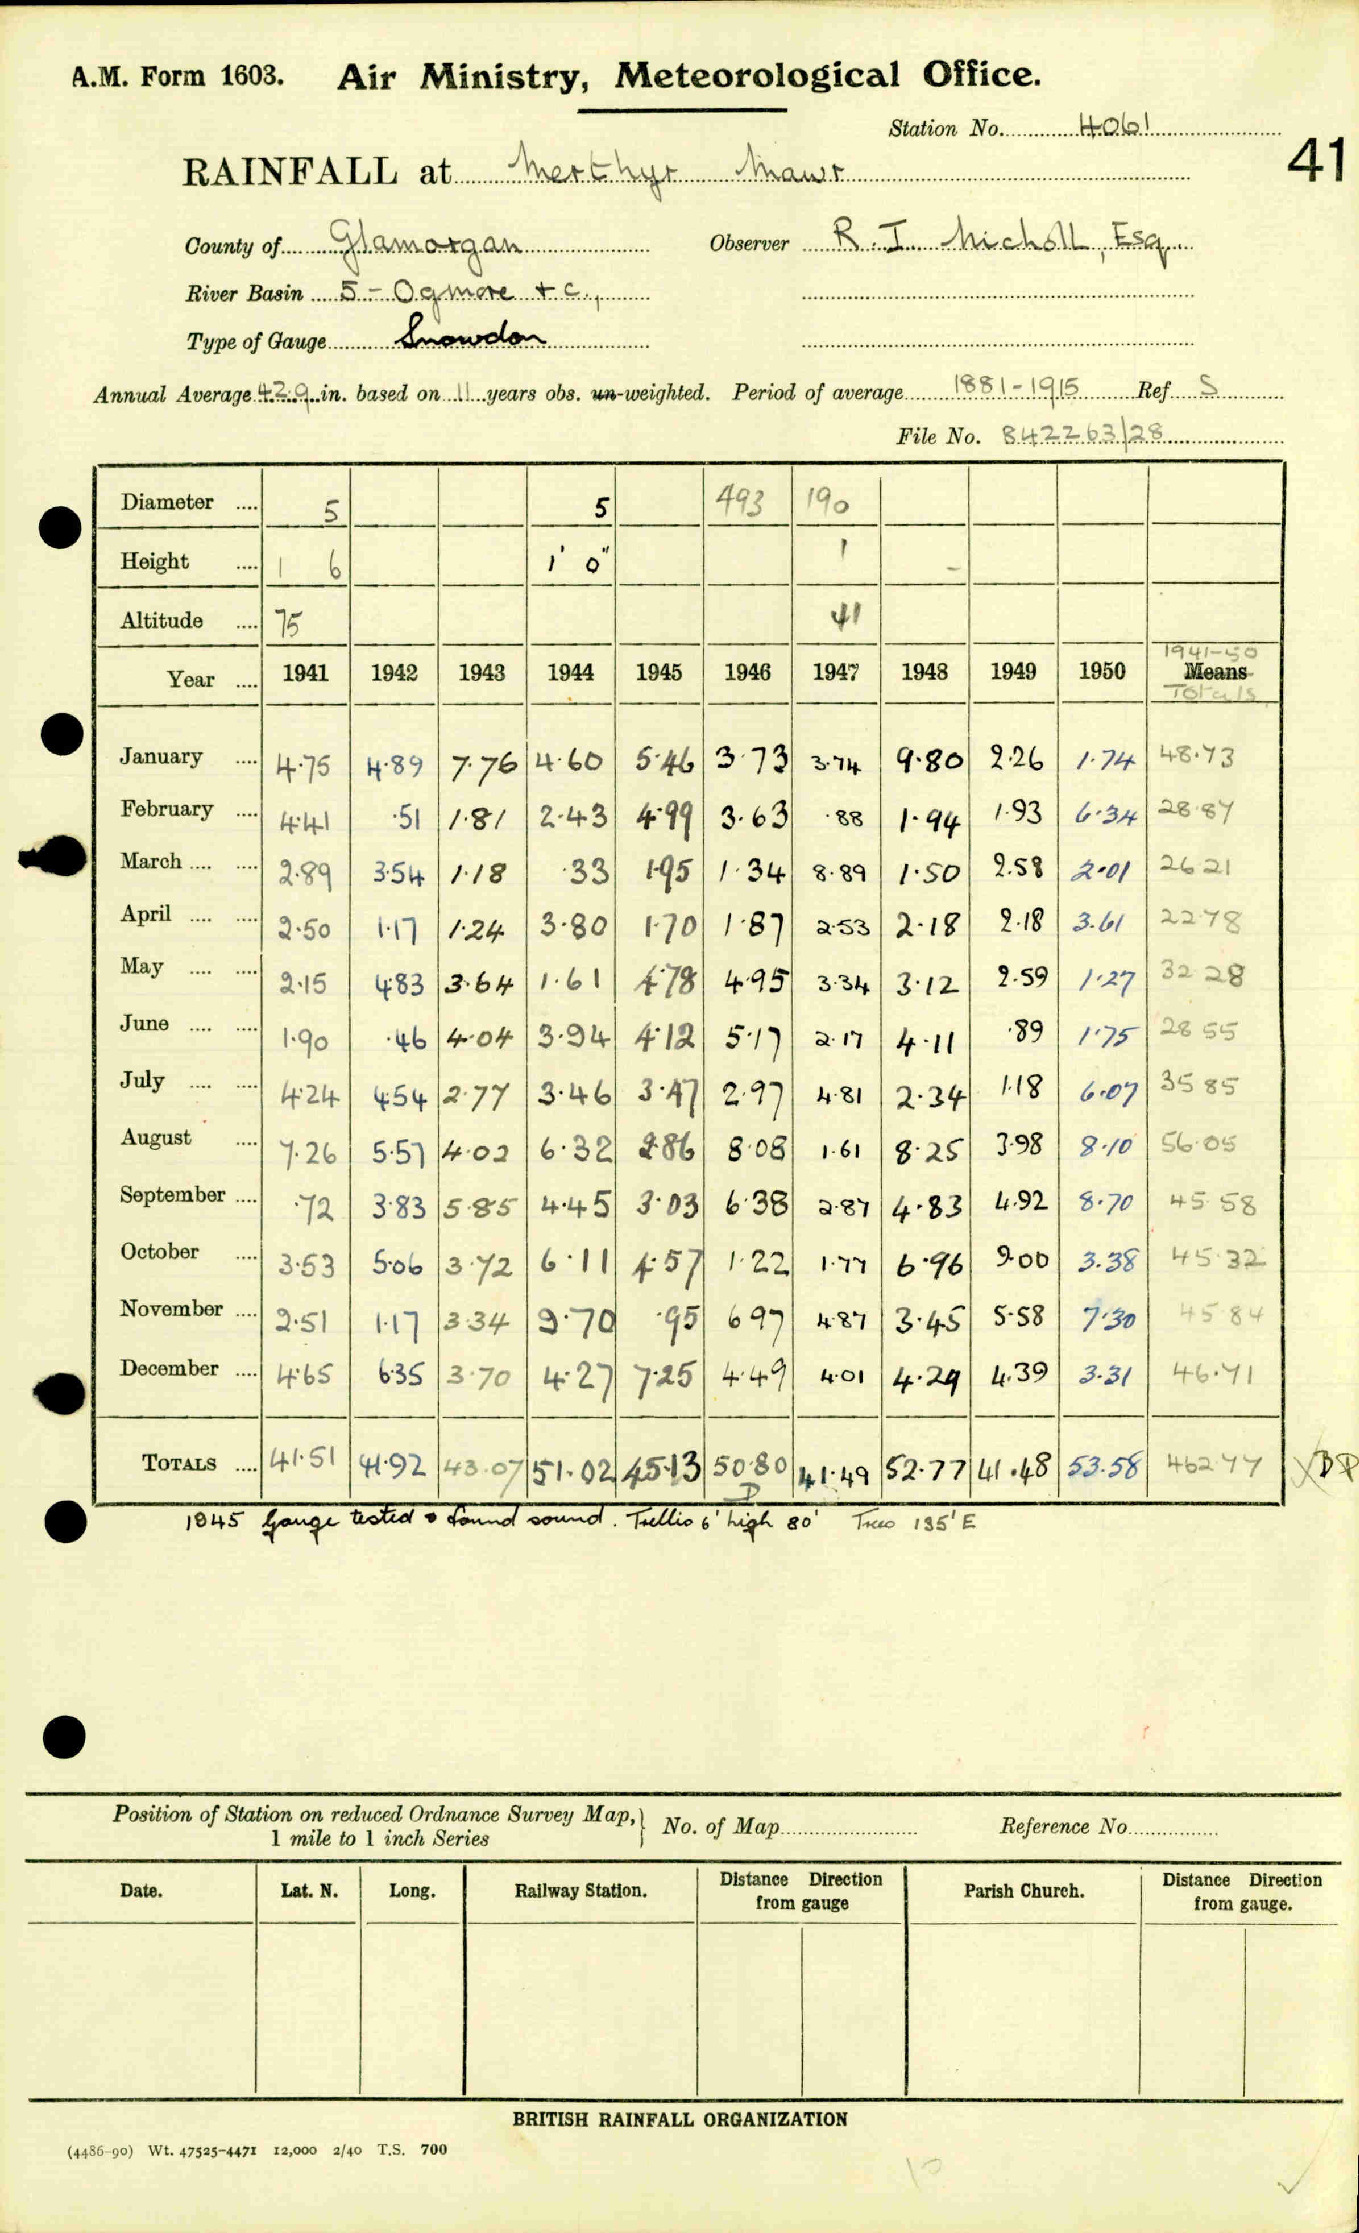 A.M. Form 1603. Air Ministry, Meteorological Office.
Station No. 4061
41
RAINFALL at Merthyr Mawr
County of Glamorgan Observer R. I. Nicholl, Esq.
River Basin 5 - Ogmore + c.,
Type of Gauge Snowdon
Annual Average 42.9 in. based on 11 years obs. un-weighted. Period of average 1881-1915 Ref S
File No. 842263/28
Diameter 5 5 493 190
Height 1 6 1' 0" 1 -
Altitude 75 41
Year 1941 1942 1943 1944 1945 1946 1947 1948 1949 1950 1941-50 Means Totals
January 4.75 4.89 7.76 4.60 5.46 3.73 3.74 9.80 2.26 1.74 48.73
February 4.41 .51 1.81 2.43 4.99 3.63 .88 1.94 1.93 6.34 28.87
March 2.89 3.54 1.18 .33 1.95 1.34 8.89 1.50 2.58 2.01 26 21
April 2.50 1.17 1.24 3.80 1.70 1.87 2.53 2.18 2.18 3.61 22.78
May 2.15 4.83 3.64 1.61 4.78 4.95 3.34 3.12 2.59 1.27 32 28
June 1.90 .46 4.04 3.94 4.12 5.17 2.17 4.11 .89 1.75 28 55
July 4.24 4.54 2.77 3.46 3.47 2.97 4.81 2.34 1.18 6.07 35 85
August 7.26 5.57 4.02 6.32 2.86 8.08 1.61 8.25 3.98 8.10 56.05
September .72 3.83 5.85 4.45 3.03 6.38 2.87 4.83 4.92 8.70 45.58
October 3.53 5.06 3.72 6.11 4.57 1.22 1.77 6.96 9.00 3.38 45.32
November 2.51 1.17 3.34 9.70 .95 6.97 4.87 3.45 5.58 7.30 45.84
December 4.65 6.35 3.70 4.27 7.25 4.49 4.01 4.29 4.39 3.31 46.71
TOTALS 41.51 41.92 43.07 51.02 45.13 50.80 41.49 52.77 41.48 53.58 462.77
D
1945 Gauge tested & found sound. Trellis 6' high 80' Trees 135' E
Position of Station on reduced Ordnance Survey Map, 1 mile to 1 inch Series No. of Map Reference No.
Date. Lat. N. Long. Railway Station. Distance Direction from gauge Parish Church. Distance Direction from gauge.
BRITISH RAINFALL ORGANIZATION
(4486-90) Wt. 47525-4471 12,000 2/40 T.S. 700